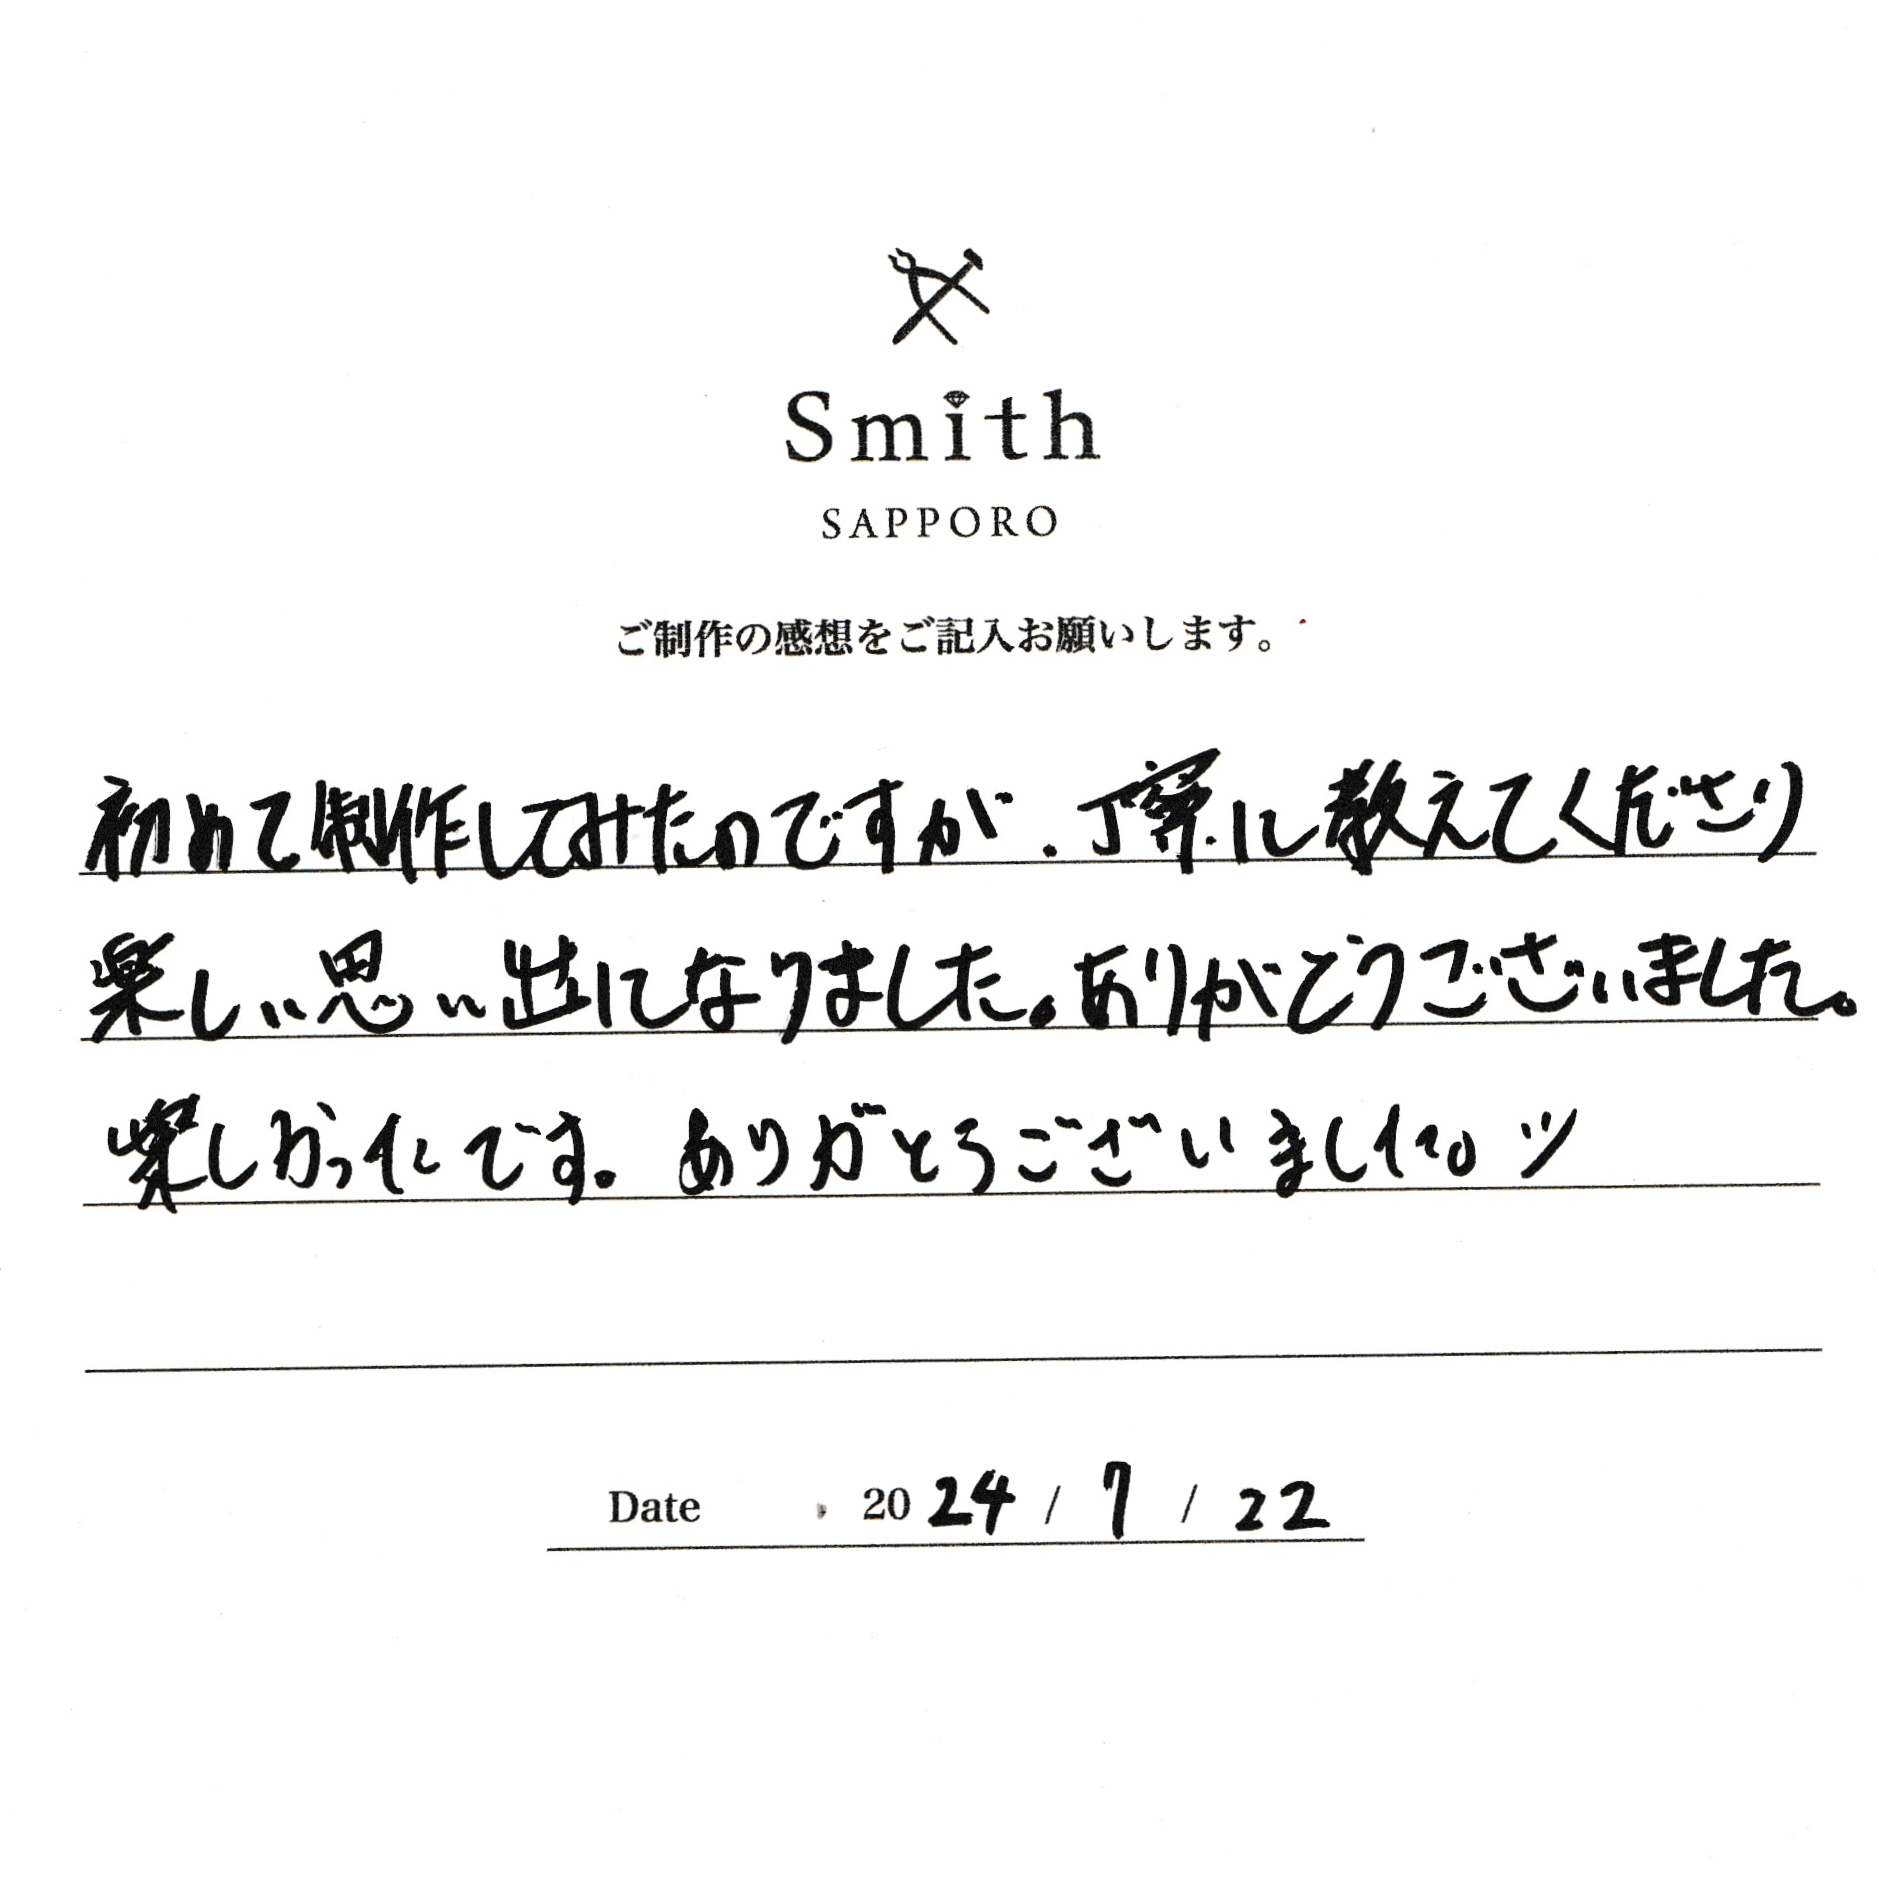 Smith
SAPPORO
ご制作の感想をご記入お願いします。
初めて制作してみたのですが、丁寧に教えてくださり
楽しい思い出になりました。ありがとうございました。
楽しかったです。ありがとうございました。ツ
Date 2024 / 7 / 22